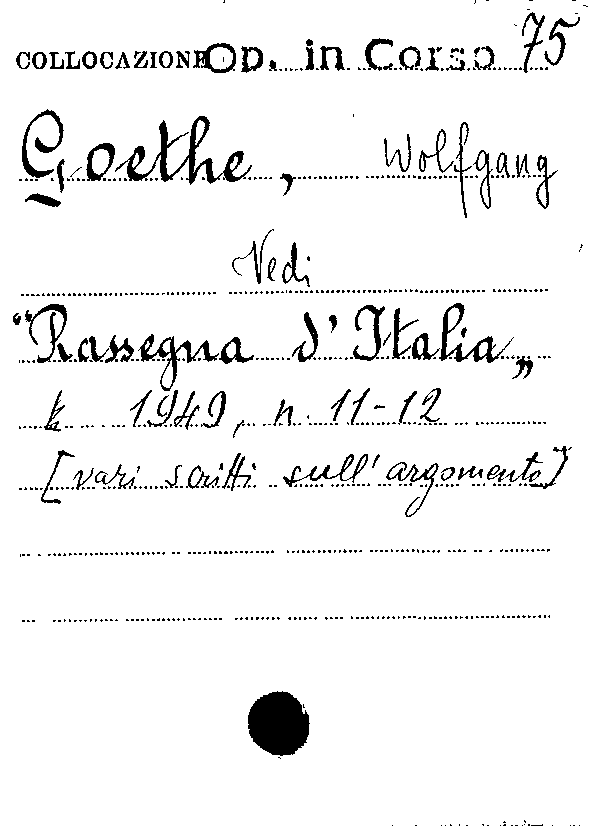 COLLOCAZIONE Op. in Corso 75
Goethe, Wolfgang
Vedi
"Rassegna d'Italia„
1949, n. 11-12
[vari scritti sull'argomento]